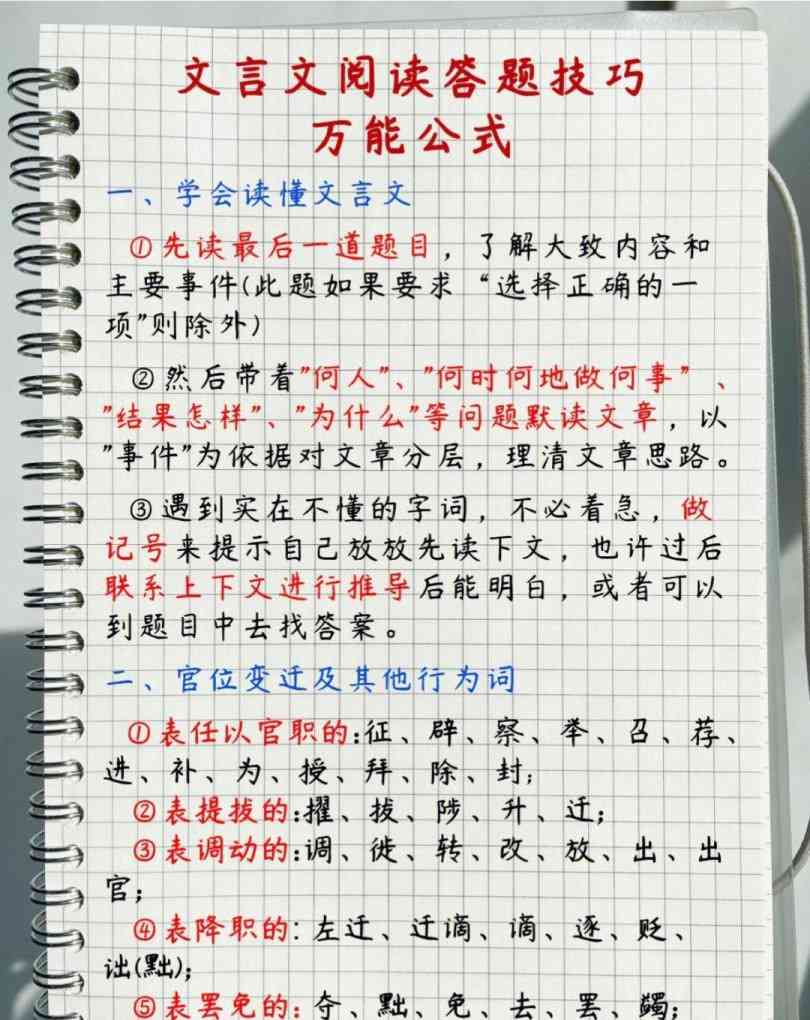 文言文阅读答题技巧
万能公式
一、学会读懂文言文
①先读最后一道题目，了解大致内容和
主要事件(此题如果要求“选择正确的一
项”则除外)
②然后带着"何人"、"何时何地做何事"、
"结果怎样"、"为什么"等问题默读文章，以
"事件"为依据对文章分层，理清文章思路。
③遇到实在不懂的字词，不必着急，做
记号来提示自己放放先读下文，也许过后
联系上下文进行推导后能明白，或者可以
到题目中去找答案。
二、官位变迁及其他行为词
①表任以官职的:征、辟、察、举、召、荐、
进、补、为、授、拜、除、封;
②表提拔的:擢、拔、陟、升、迁;
③表调动的:调、徙、转、改、放、出、出
官;
④表降职的：左迁、迁谪、谪、逐、贬、
诎(黜);
⑤表罢免的：夺、黜、免、去、罢、蠲;